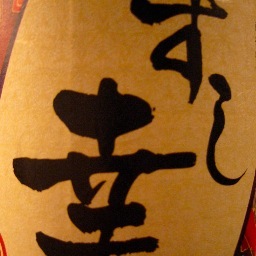 すし
幸